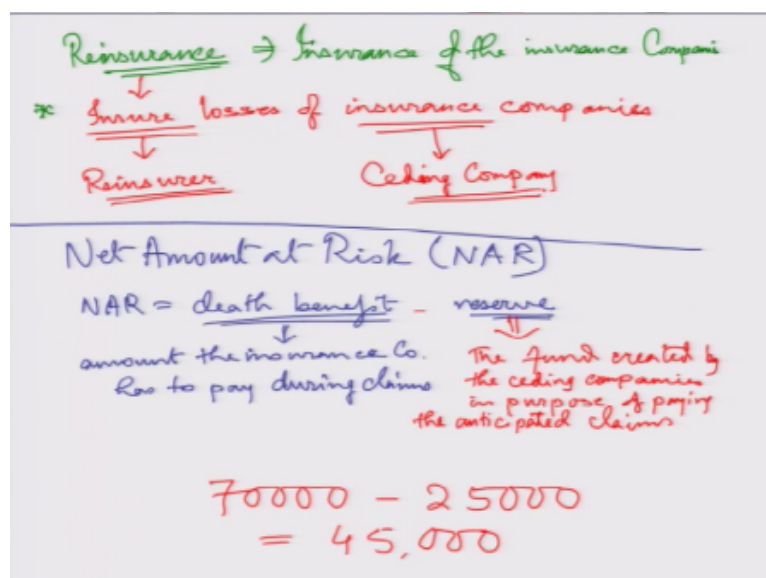 Reinsurance ⇒ Insurance of the insurance Compani
* Insure losses of insurance companies
Reinsurer Ceding Company
Net Amount at Risk (NAR)
NAR = death benefit - reserve
amount the insurance Co.
has to pay during claims
The fund created by
the ceding companies
in purpose of paying
the anticipated claims
70000 - 25000
= 45,000